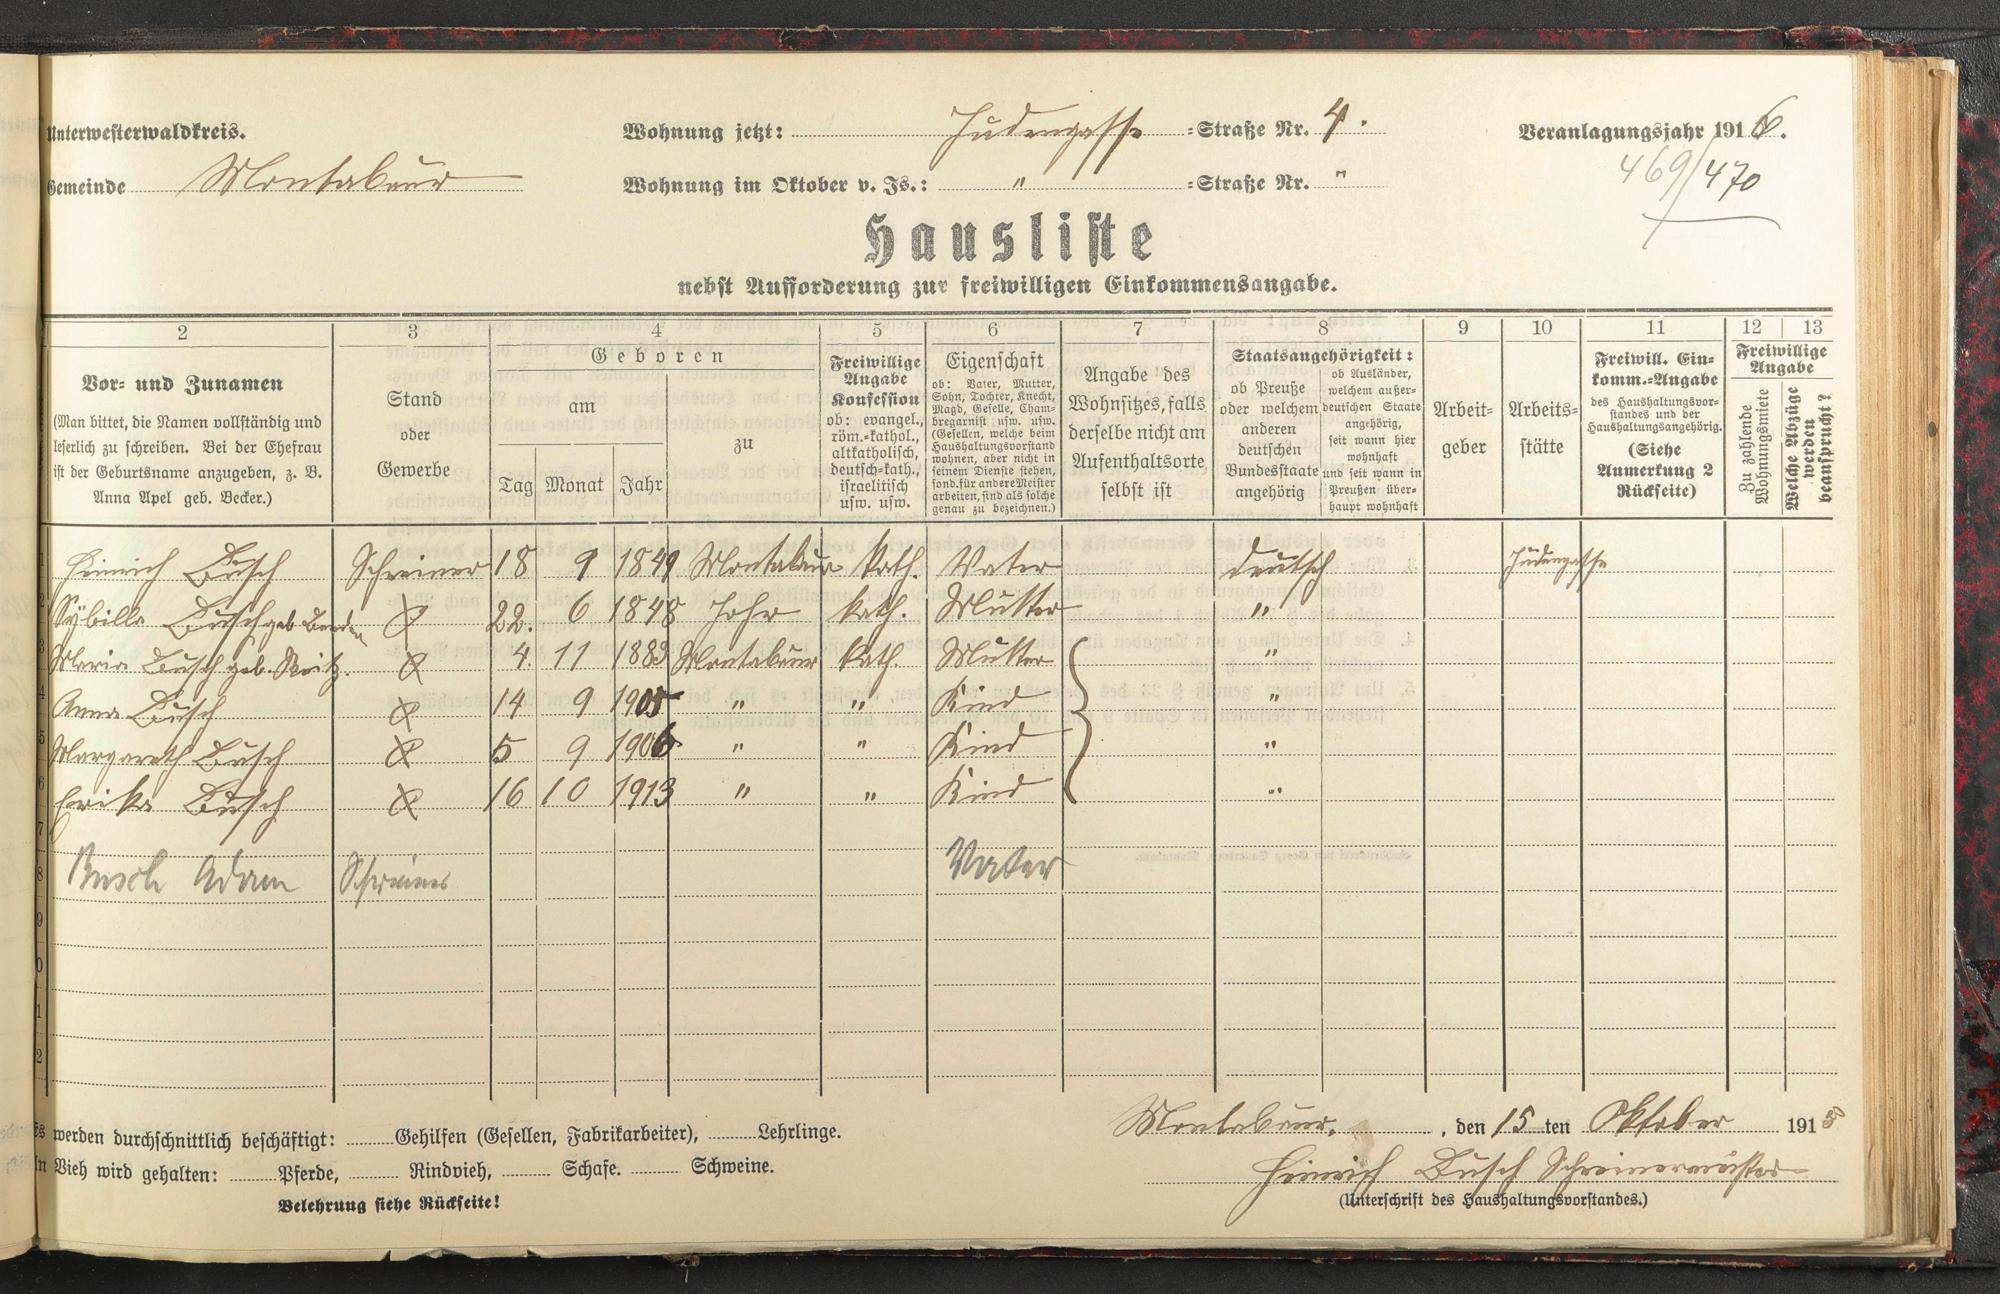 Unterwesterwaldkreis.
Wohnung jetzt: Judengasse =Straße Nr. 4.
Veranlagungsjahr 1916.
Gemeinde Montabaur
Wohnung im Oktober v. Js.: " =Straße Nr. "
469/470
Hausliste
nebst Aufforderung zur freiwilligen Einkommensangabe.
2 3 4 5 6 7 8 9 10 11 12 13
Vor- und Zunamen
(Man bittet, die Namen vollständig und
leserlich zu schreiben. Bei der Ehefrau
ist der Geburtsname anzugeben, z. B.
Anna Apel geb. Becker.)
Stand
oder
Gewerbe
Geboren
am
Tag Monat Jahr
zu
Freiwillige
Angabe
Konfession
ob: evangel.,
röm.-kathol.,
altkatholisch,
deutsch-kath.,
israelitisch
usw. usw.
Eigenschaft
ob: Vater, Mutter,
Sohn, Tochter, Knecht,
Magd, Geselle, Cham-
bregarnist usw. usw.
(Gesellen, welche beim
Haushaltungsvorstand
wohnen, aber nicht in
seinem Dienste stehen,
sond. für andere Meister
arbeiten, sind als solche
genau zu bezeichnen.)
Angabe des
Wohnsitzes, falls
derselbe nicht am
Aufenthaltsorte
selbst ist
Staatsangehörigkeit:
ob Preuße
oder welchem
anderen
deutschen
Bundesstaate
angehörig
ob Ausländer,
welchem außer-
deutschen Staate
angehörig,
seit wann hier
wohnhaft
und seit wann in
Preußen über-
haupt wohnhaft
Arbeit-
geber
Arbeits-
stätte
Freiwill. Ein-
komm.-Angabe
des Haushaltungsvor-
standes und der
Haushaltungsangehörig.
(Siehe
Anmerkung 2
Rückseite)
Freiwillige
Angabe
Zu zahlende
Wohnungsmiete
Welche Abzüge
werden
beansprucht?
1 Heinrich Busch Schreiner 18 9 1849 Montabaur kath. Vater deutsch Judengasse
2 Sybilla Busch geb. 22. 6 1848 kath. Mutter "
3 Maria Busch geb. 4. 11 1883 Montabaur kath. Mutter "
4 Anna Busch 14 9 1905 " " Kind "
5 Margareth Busch 5 9 1906 " " Kind "
6 Erika Busch 16 10 1913 " " Kind "
7
8 Busch Adam Schreiner Vater
9
0
1
2
werden durchschnittlich beschäftigt: Gehilfen (Gesellen, Fabrikarbeiter), Lehrlinge.
Montabaur, den 15 ten Oktober 191
Vieh wird gehalten: Pferde, Rindvieh, Schafe. Schweine.
Heinrich Busch Schreinermeister
(Unterschrift des Haushaltungsvorstandes.)
Belehrung siehe Rückseite!